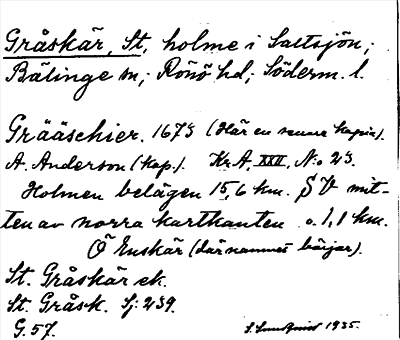 Gråskär, St, holme i Saltsjön,
Bälinge sn, Rönö hd, Söderm. l.
Gråäschier. 1673 (Här en senare kopia).
A. Anderson (kop.). Kr. A, XXII, No 23.
Holmen belägen 15,6 km. SV mit-
ten av norra kartkanten o. 1,1 km.
Ö Enskär (där namnet börjar).
St. Gråskär ek.
St. Gråsk. Sj: 239.
G. 57. S. Sundquist 1935.